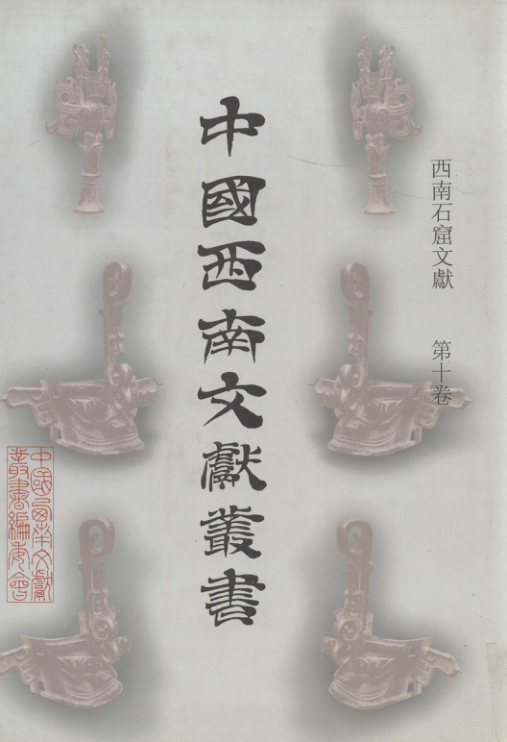 西南石窟文獻 第十卷
中國西南文獻叢書
中國西南文獻
叢書編委會